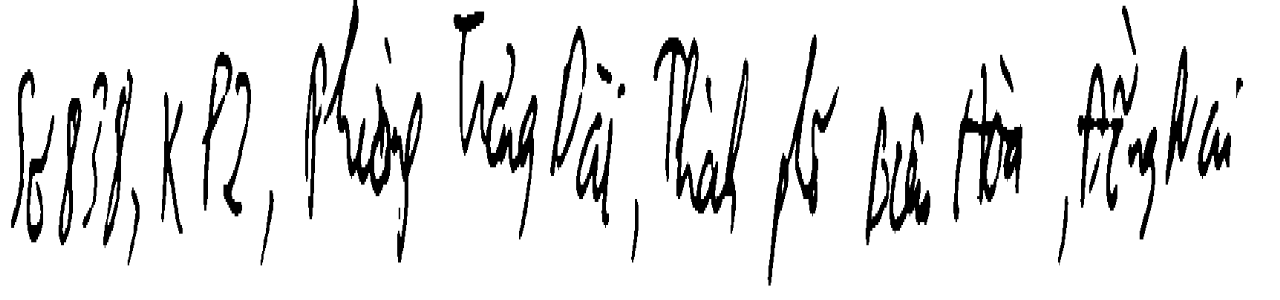 Số 838, KP2, Phường Trảng Dài, Thành phố Biên Hòa, Đồng Nai